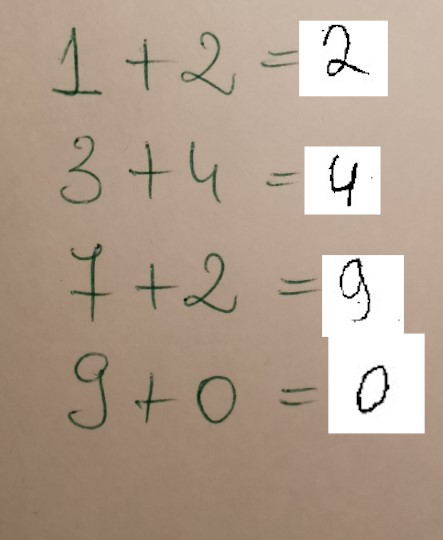 1 + 2 = 2
3 + 4 = 4
7 + 2 = 9
9 + 0 = 0